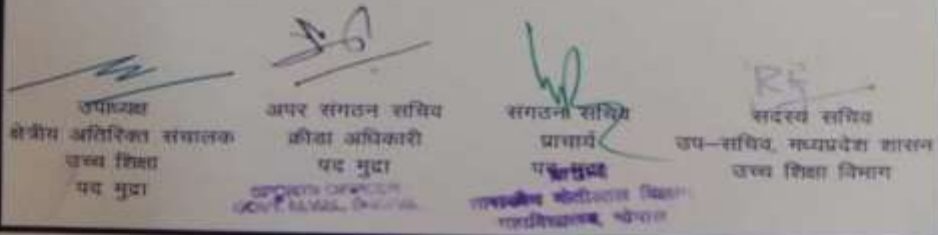 उपाध्यक्ष
क्षेत्रीय अतिरिक्त संचालक
उच्च शिक्षा
पद मुद्रा
अपर संगठन सचिव
क्रीडा अधिकारी
पद मुद्रा
SPORTS OFFICER
संगठन सचिव
प्राचार्य
पद मुद्रा
प्राचार्य
शासकीय मोतीलाल विज्ञान
महाविद्यालय, भोपाल
सदस्य सचिव
उप–सचिव, मध्यप्रदेश शासन
उच्च शिक्षा विभाग